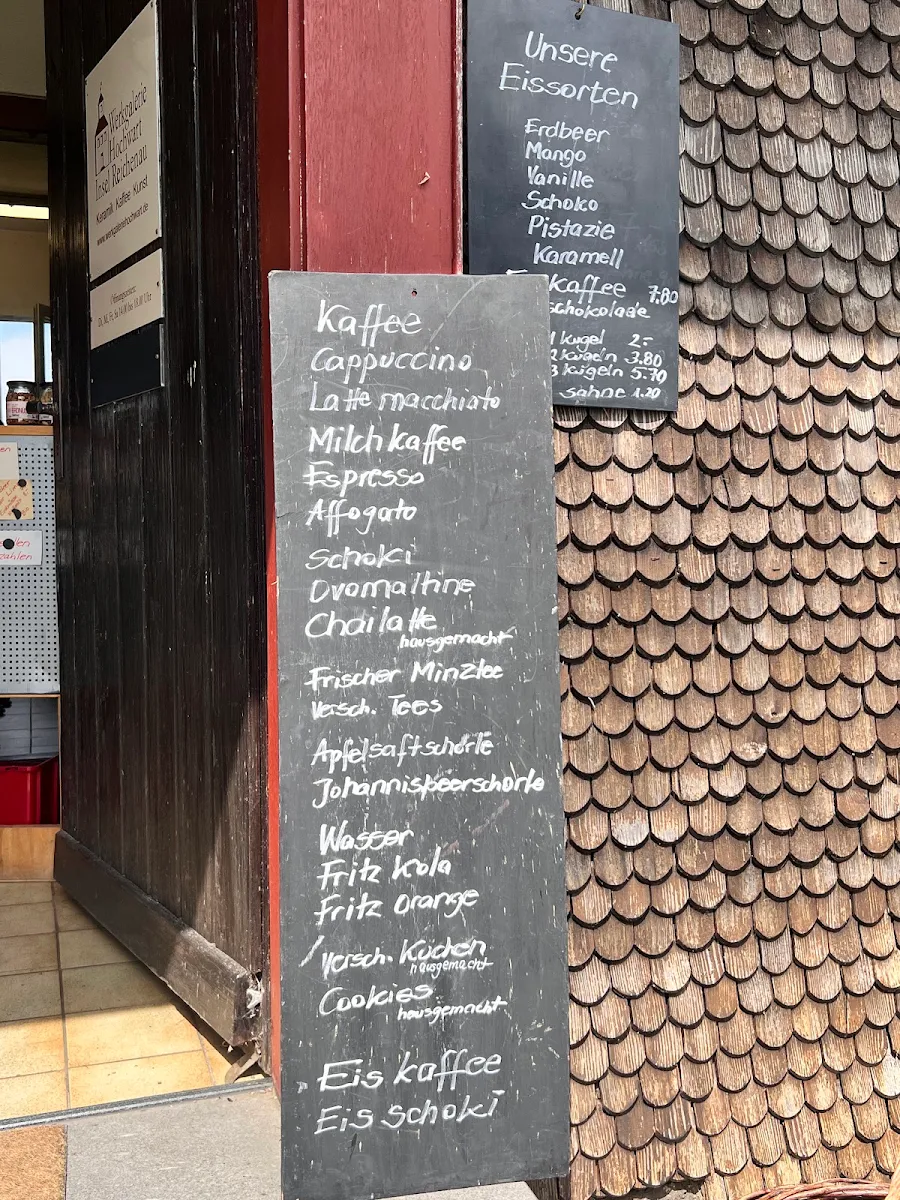 Werkgalerie
Hochwart
Insel Reichenau
Keramik Kaffee Kunst
www.werkgaleriehochwart.de
Öffnungszeiten:
Unsere
Eissorten
Erdbeer
Mango
Vanille
Schoko
Pistazie
Karamell
Kaffee 7.80
schokolade
1 Kugel 2.-
2 Kugeln 3.80
3 Kugeln 5.70
sahne 1.20
Kaffee
Cappuccino
Latte macchiato
Milchkaffee
Espresso
Affogato
Schoki
Ovomaltine
Chailatte
hausgemacht
Frischer Minztee
Versch. Tees
Apfelsaftschorle
Johannisbeerschorle
Wasser
Fritz Kola
Fritz Orange
Versch. Kuchen
hausgemacht
Cookies
hausgemacht
Eis kaffee
Eis schoki